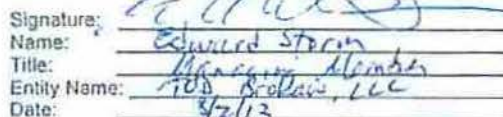 Signature:
Name: Edward Storm
Title: Managing Member
Entity Name: Brokaw, LLC
Date: 3/7/13